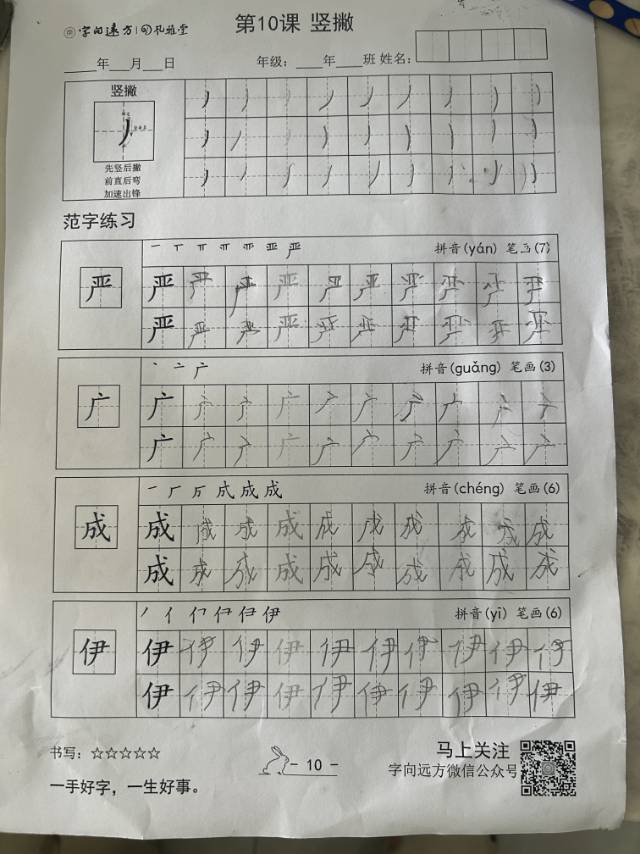 字向远方 | 句礼雅堂
第10课 竖撇
____年___月___日 年级：____年____班 姓名：
竖撇
先竖后撇
前直后弯
加速出锋
范字练习
一 丅 丌 严 拼音(yán) 笔画(7)
严 严 严 严 严 严 严 严 严 严 严
严 严 严 严 严 严 严 严 严 严
丶 亠 广 拼音(guǎng) 笔画(3)
广 广 广 广 广 广 广 广 广 广 广
广 广 广 广 广 广 广 广 广 广
一 厂 成 成 拼音(chéng) 笔画(6)
成 成 成 成 成 成 成 成 成 成 成
成 成 成 成 成 成 成 成 成 成
丿 亻 伊 伊 拼音(yī) 笔画(6)
伊 伊 伊 伊 伊 伊 伊 伊 伊 伊 伊
伊 伊 伊 伊 伊 伊 伊 伊 伊 伊
书写：☆☆☆☆☆
- 10 -
马上关注
字向远方微信公众号
一手好字，一生好事。